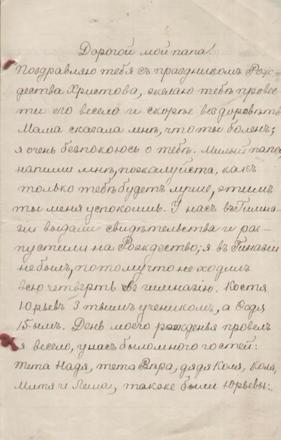 Дорогой мой папа!
Поздравляю тебя съ праздникомъ Рож-
дества Христова, желаю тебѣ провес-
ти его весело и скорѣе выздоровѣть
Мама сказала мнѣ, что ты боленъ;
я очень безпокоюсь о тебѣ. Милый папа,
напиши мнѣ, пожалуйста, какъ
только тебѣ будетъ лучше, этимъ
ты меня успокоишь. У насъ въ Гимна-
зіи выдали свидѣтельства и рас-
пустили на Рождество; я въ Гимназіи
не былъ, потому что не ходилъ
всю четверть въ гимназію. Костя
Юрьевъ 3тьимъ ученикомъ, а
15ымъ. День моего рожденья провелъ
я весело, у насъ было много гостей:
тетя Надя, тетя Вѣра, дядя Коля, Коля,
Митя и Леля, также были Юрьевы: